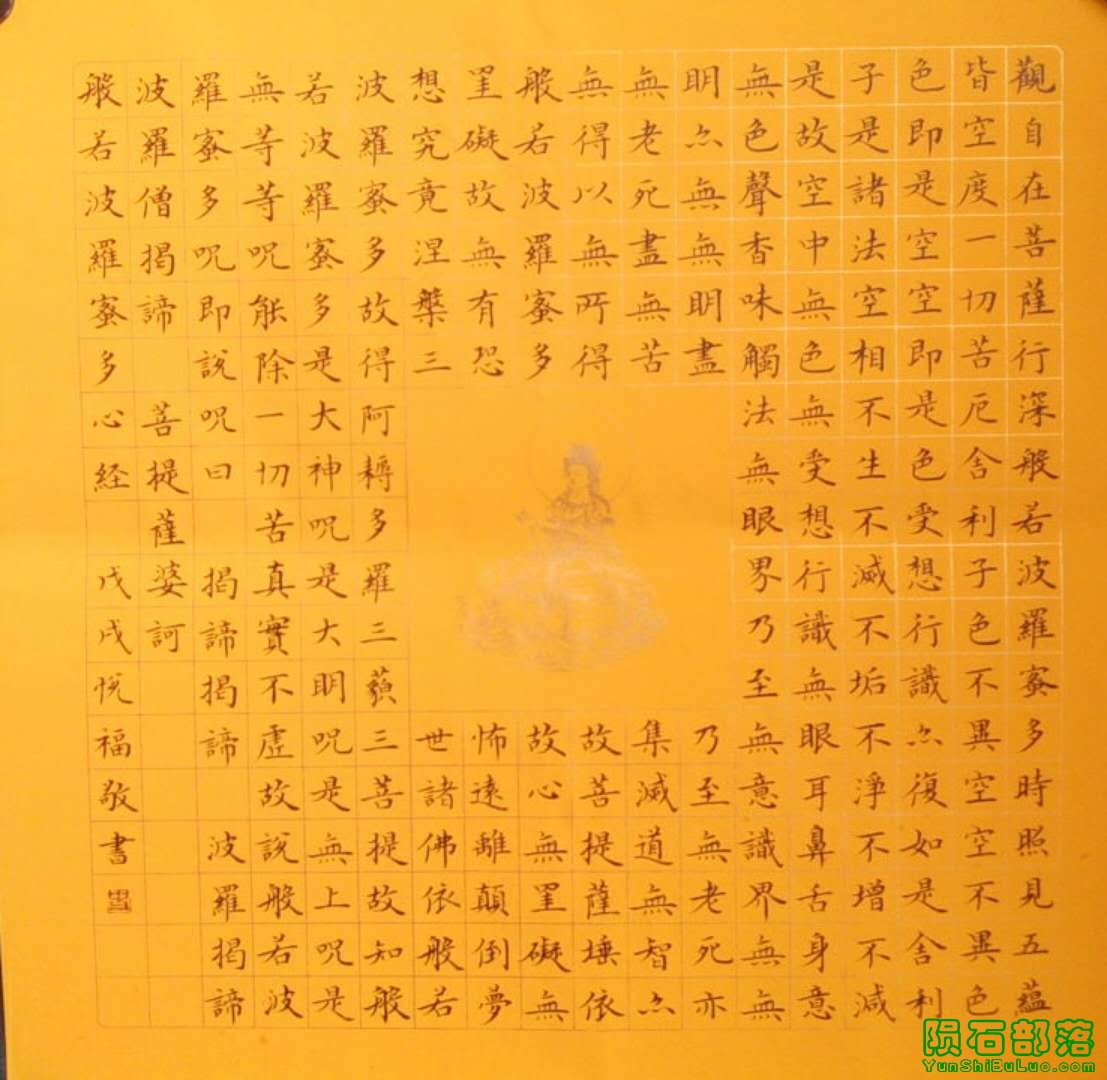 觀自在菩薩行深般若波羅蜜多時照見五蘊
皆空度一切苦厄舍利子色不異空空不異色
色即是空空即是色受想行識亦復如是舍利
子是諸法空相不生不滅不垢不淨不增不減
是故空中無色無受想行識無眼耳鼻舌身意
無色聲香味觸法無眼界乃至無意識界無無
明亦無無明盡 乃至無老死亦
無老死盡無苦 集滅道無智亦
無得以無所得 故菩提薩埵依
般若波羅蜜多 故心無罣礙無
罣礙故無有恐 怖遠離顛倒夢
想究竟涅槃三 世諸佛依般若
波羅蜜多故得阿耨多羅三藐三菩提故知般
若波羅蜜多是大神呪是大明呪是無上呪是
無等等呪能除一切苦真實不虛故說般若波
羅蜜多呪即說呪曰 揭諦揭諦 波羅揭諦
波羅僧揭諦 菩提薩婆訶
般若波羅蜜多心経 戊戌悅福敬書
陨石部落
YunShiBuLuo.com